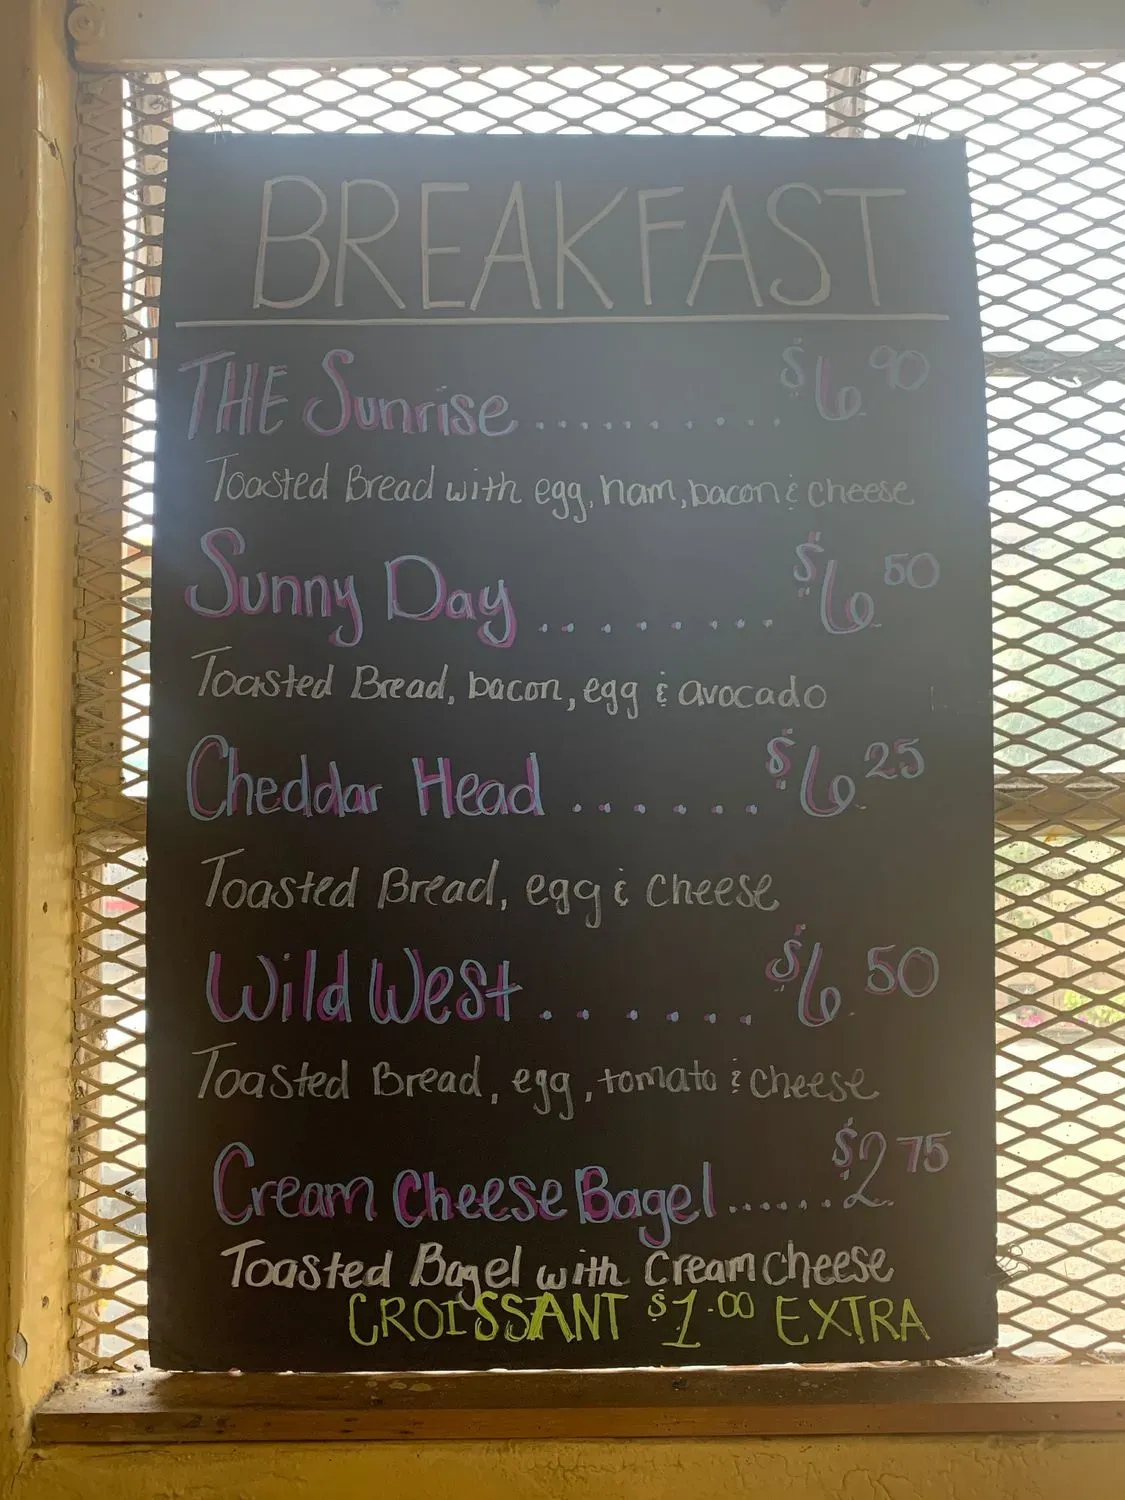 BREAKFAST
THE Sunrise .......... $6.90
Toasted Bread with egg, ham, bacon & cheese
Sunny Day ........ $6.50
Toasted Bread, bacon, egg & avocado
Cheddar Head ...... $6.25
Toasted Bread, egg & cheese
Wild West ...... $6.50
Toasted Bread, egg, tomato & cheese
Cream Cheese Bagel ...... $2.75
Toasted Bagel with Cream cheese
CROISSANT $1.00 EXTRA